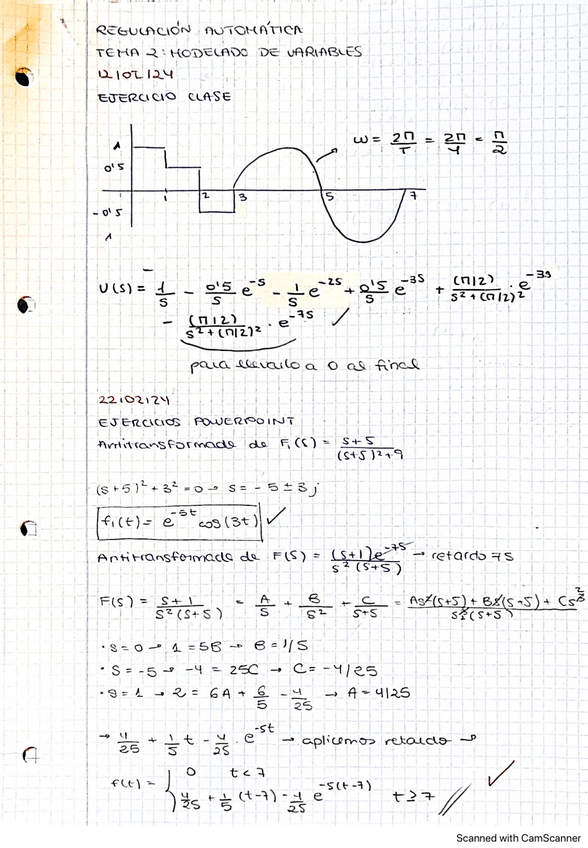 REGULACIÓN AUTOMÁTICA
TEMA 2: MODELADO DE VARIABLES
12/02/24
EJERCICIO CLASE
1
0'5
-0'5
1
1 2 3 5 7
ω = 2π/T = 2π/4 = π/2
U(s) = 1/s - 0'5/s e^-s - 1/s e^-2s + 0'5/s e^-3s + (π/2)/(s²+(π/2)²) · e^-3s
- (π/2)/(s²+(π/2)²) · e^-7s ✓
para llevarlo a 0 al final
22/02/24
EJERCICIOS POWERPOINT
Antitransformada de F₁(s) = (s+5)/((s+5)²+9)
(s+5)²+3²=0 → s = -5 ± 3j
f₁(t) = e^-5t cos(3t) ✓
Antitransformada de F(s) = (s+1)e^-7s/(s²(s+5)) → retardo 7s
F(s) = (s+1)/(s²(s+5)) = A/s + B/s² + C/(s+5) = (As(s+5) + B(s+5) + Cs²)/(s²(s+5))
· s=0 → 1 = 5B → B = 1/5
· s=-5 → -4 = 25C → C = -4/25
· s=1 → 2 = 6A + 6/5 - 4/25 → A = 4/25
→ 4/25 + 1/5 t - 4/25 · e^-5t → aplicamos retardo →
f(t) = { 0 t<7
4/25 + 1/5 (t-7) - 4/25 e^-5(t-7) t≥7 // ✓
Scanned with CamScanner